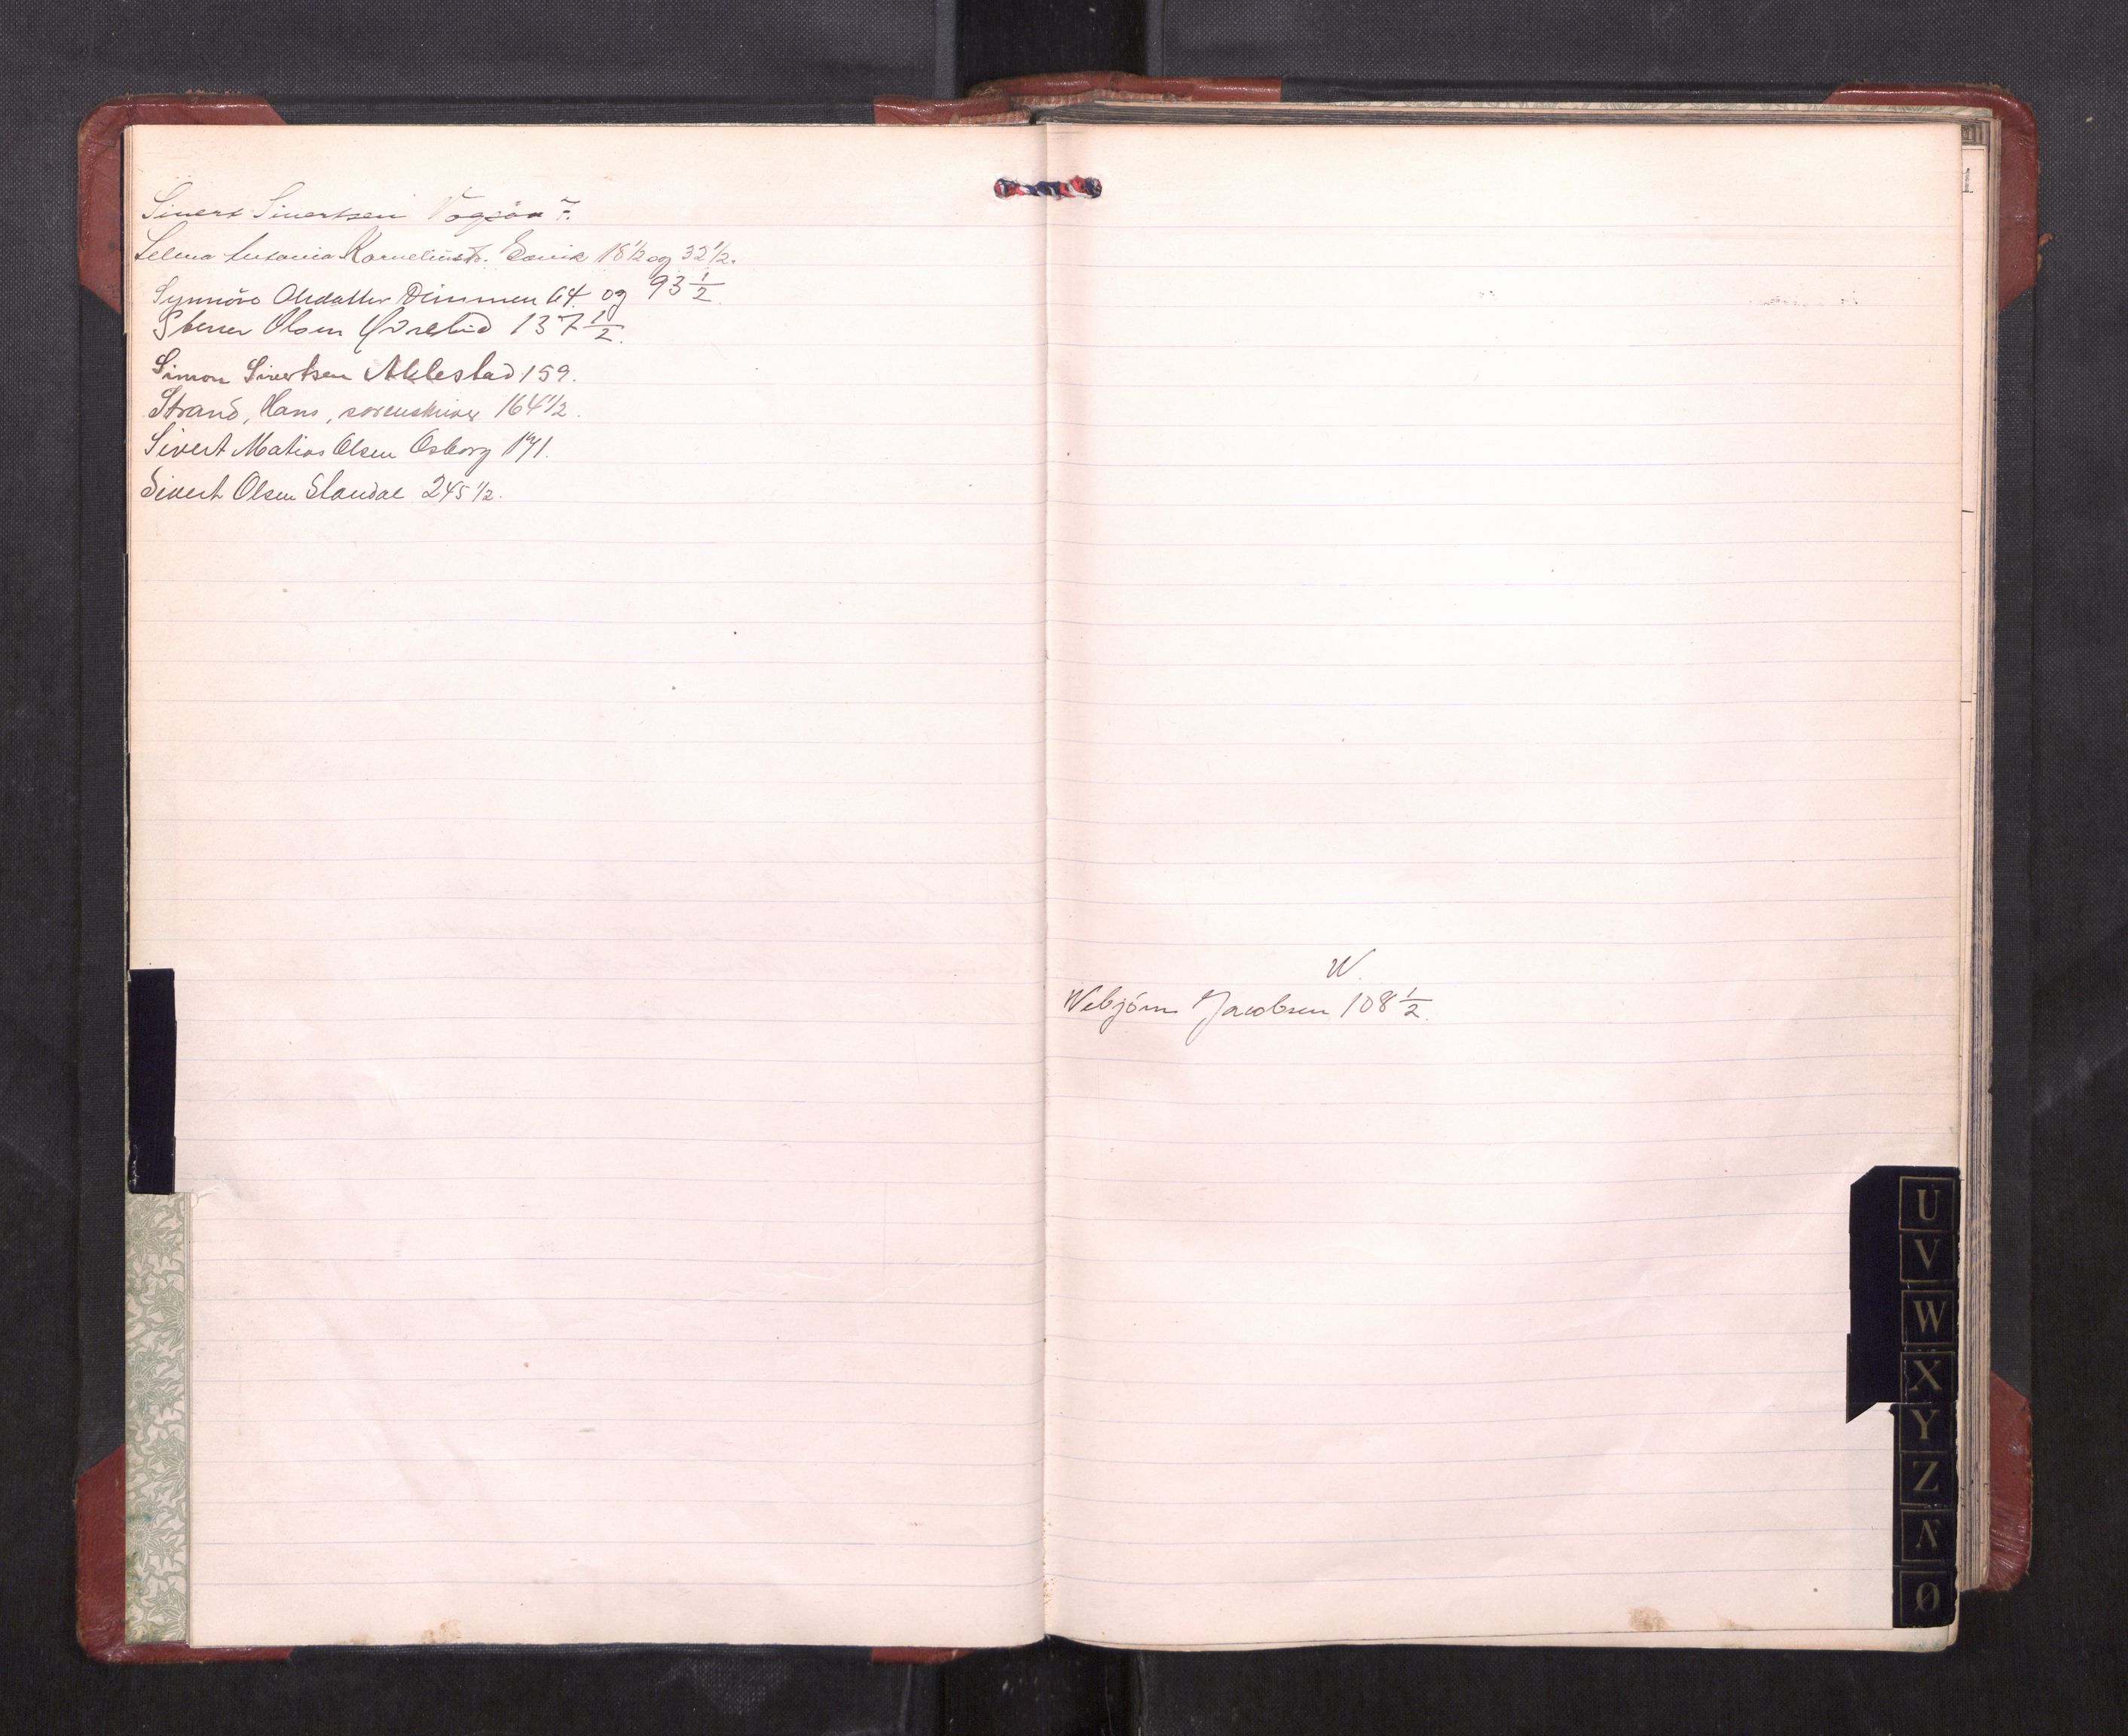 Sivert Sivertsen Vågsöa 7.
Selma Antonia Korneliusd. Esevik 18 1/2 og 32 1/2.
Synnöve Olsdatter Dimmen 64. og 93 1/2.
Olsen 137 1/2.
Simon Sivertsen Aklestad 159.
Strand, Hans, sorenskriver 164 1/2.
Sivert Matias Olsen Osborg 171.
Sivert Olsen Standal 245 1/2.
W.
Webjörn Jacobsen 108 1/2.
U
V
W
X
Y
Z
Ø